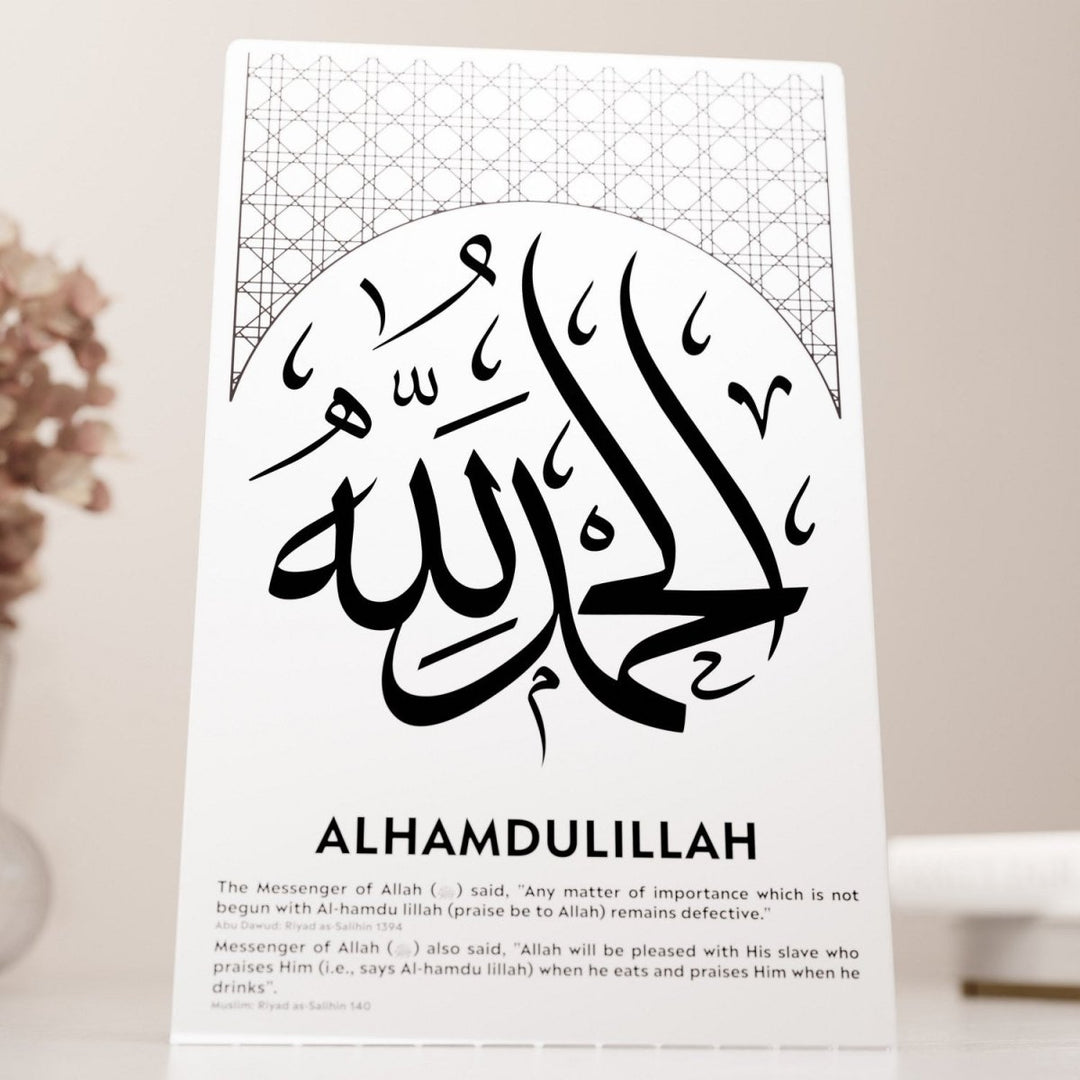 الحمد لله
ALHAMDULILLAH
The Messenger of Allah (ﷺ) said, "Any matter of importance which is not
begun with Al-hamdu lillah (praise be to Allah) remains defective."
Abu Dawud: Riyad as-Salihin 1394
Messenger of Allah (ﷺ) also said, "Allah will be pleased with His slave who
praises Him (i.e., says Al-hamdu lillah) when he eats and praises Him when he
drinks".
Muslim: Riyad as-Salihin 140